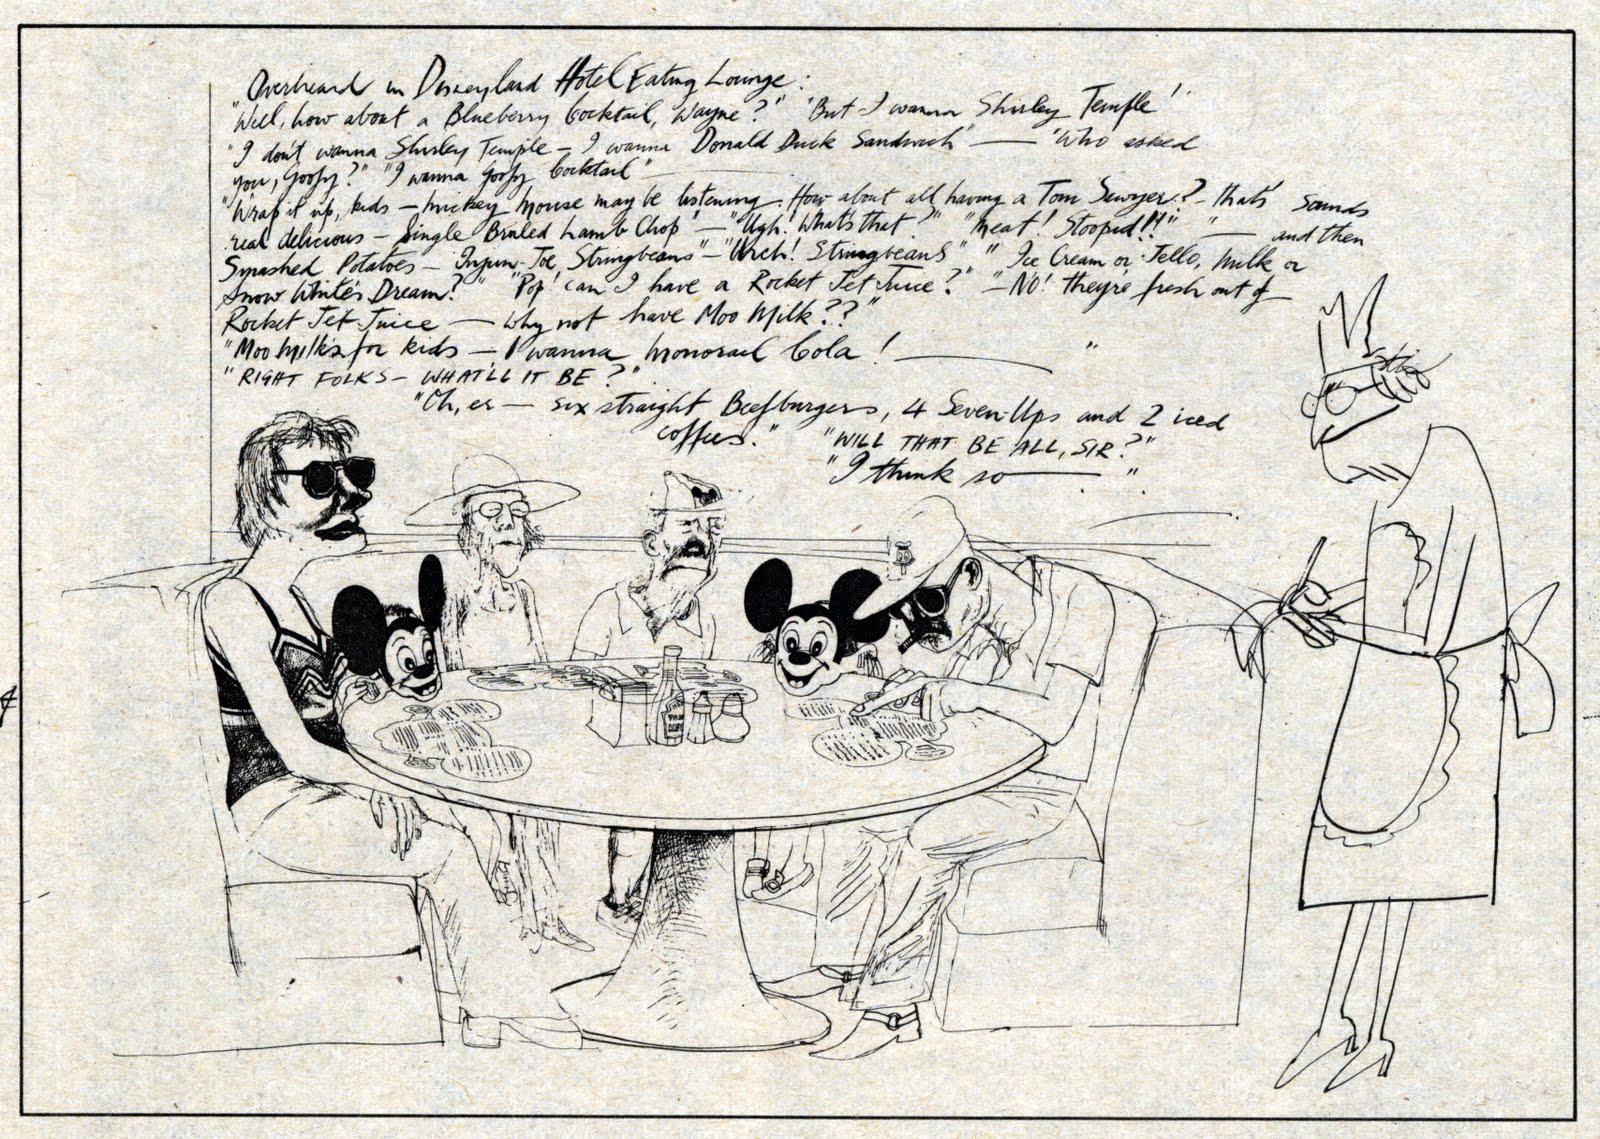 Overheard in Disneyland Hotel Eating Lounge:
"Well, how about a Blueberry Cocktail, Wayne?" "But I wanna Shirley Temple!"
"I don't wanna Shirley Temple – I wanna Donald Duck Sandwich" — "Who asked
you, Goofy?" "I wanna Goofy Cocktail"
"Wrap it up, kids – Mickey Mouse may be listening. How about all having a Tom Sawyer? – that's sounds
real delicious – Single Broiled Lamb Chop" – "Ugh! What's that?" "Meat! Stoopid!!" " — and then
Smashed Potatoes – Injun-Joe, Stringbeans" – "Urch! Stringbeans" "Ice Cream or Jello, Milk or
Snow White's Dream?" "Pop can I have a Rocket Jet Juice?" "– NO! they're fresh out of
Rocket Jet Juice — why not have Moo Milk??"
"Moo Milk's for kids – I wanna Monorail Cola! — "
"RIGHT FOLKS – WHAT'LL IT BE?"
"Oh, er — six straight Beefburgers, 4 Seven-Ups and 2 iced
coffees." "WILL THAT BE ALL, SIR?"
"I think so — . "